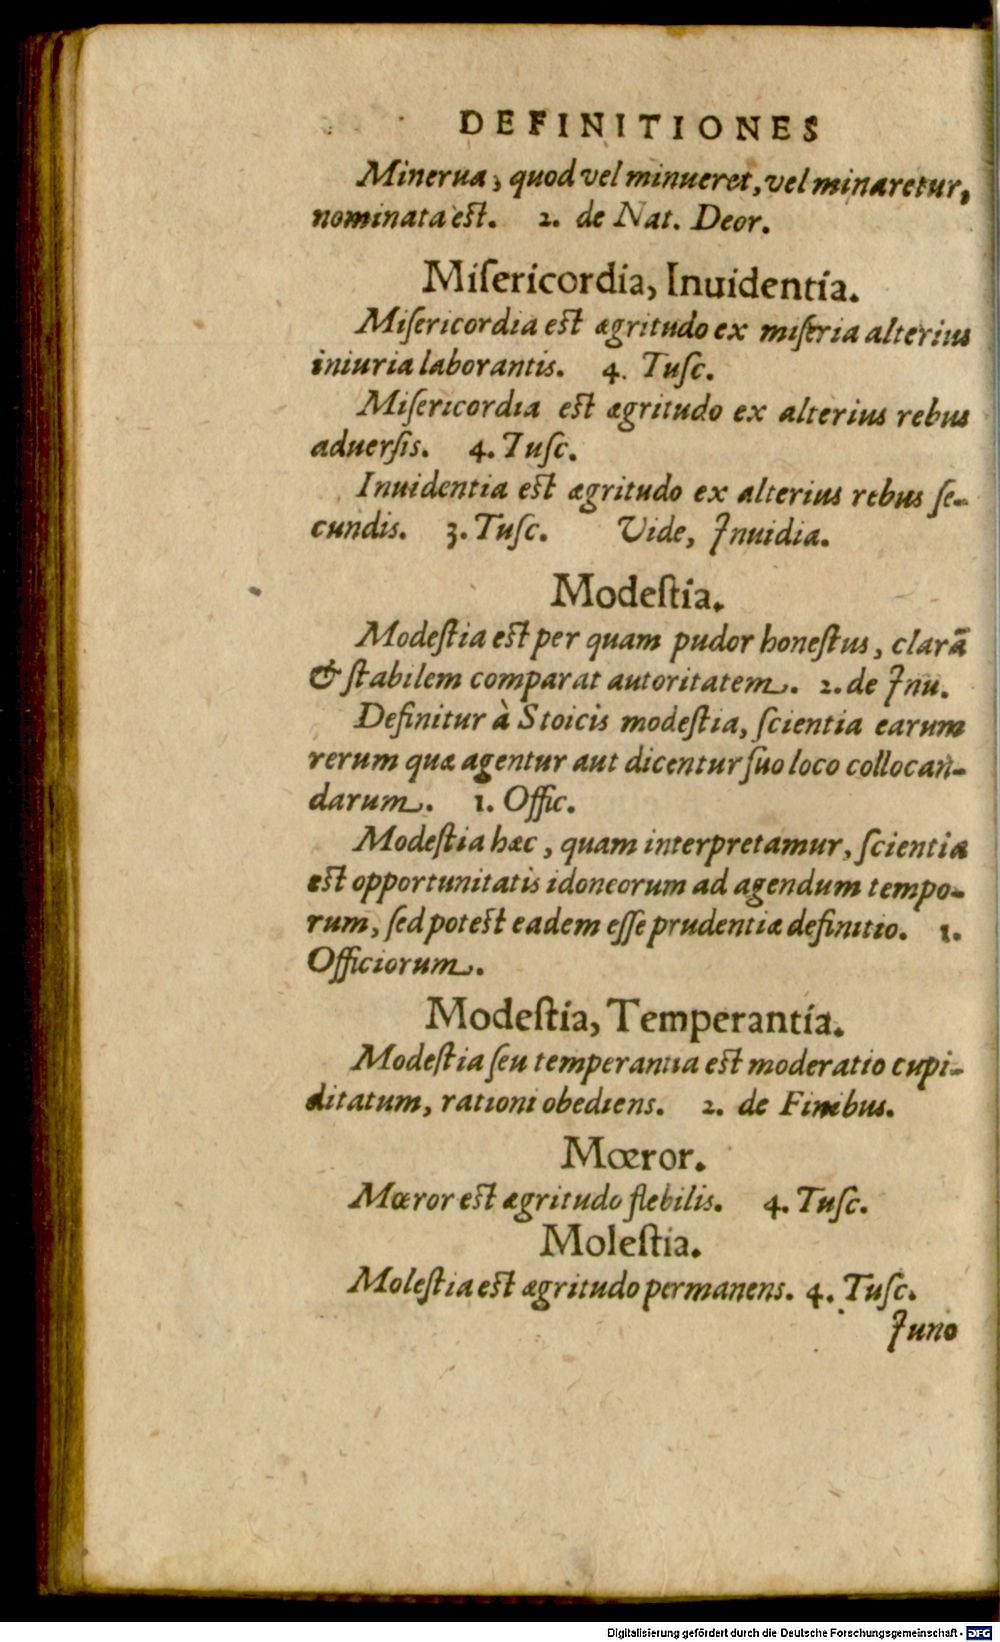 DEFINITIONES
Minerua, quod vel minueret, vel minaretur,
nominata est. 2. de Nat. Deor.
Miſericordia, Inuidentia.
Miſericordia est ægritudo ex miſeria alterius
iniuria laborantis. 4. Tuſc.
Miſericordia est ægritudo ex alterius rebus
aduerſis. 4. Tuſc.
Inuidentia est ægritudo ex alterius rebus ſe-
cundis. 3. Tuſc. Vide, Inuidia.
Modeſtia.
Modeſtia est per quam pudor honeſtus, clarā
& ſtabilem comparat autoritatem. 2. de Inu.
Definitur à Stoicis modeſtia, ſcientia earum
rerum quæ agentur aut dicentur ſuo loco collocan-
darum. 1. Offic.
Modeſtia hæc, quam interpretamur, ſcientia
est opportunitatis idoneorum ad agendum tempo-
rum, ſed potest eadem eſſe prudentiæ definitio. 1.
Officiorum.
Modeſtia, Temperantia.
Modeſtia ſeu temperantia est moderatio cupi-
ditatum, rationi obediens. 2. de Finibus.
Mœror.
Mœror est ægritudo flebilis. 4. Tuſc.
Moleſtia.
Moleſtia est ægritudo permanens. 4. Tuſc.
Juno
Digitalisierung gefördert durch die Deutsche Forschungsgemeinschaft - DFG